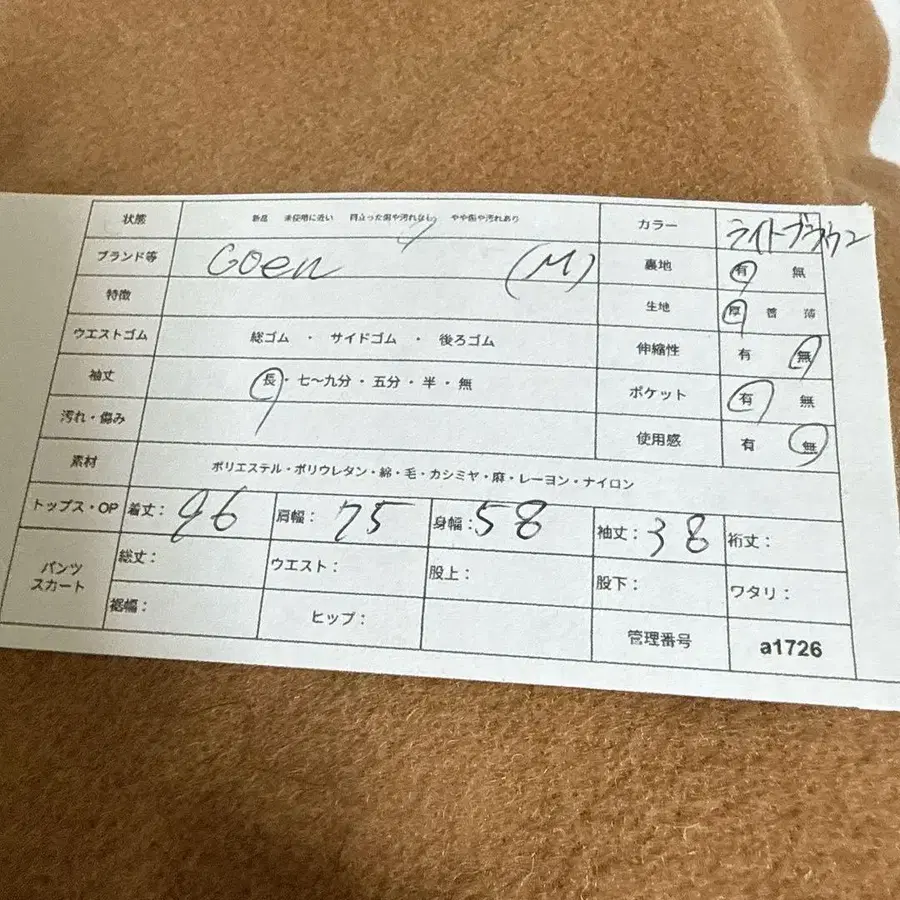 状態 新品 未使用に近い 目立った傷や汚れなし やや傷や汚れあり カラー ライトブラウン
ブランド等 Goen (M) 裏地 有 無
特徴 生地 厚 普 薄
ウエストゴム 総ゴム ・ サイドゴム ・ 後ろゴム 伸縮性 有 無
袖丈 長・七〜九分・五分・半・無 ポケット 有 無
汚れ・傷み 使用感 有 無
素材 ポリエステル・ポリウレタン・綿・毛・カシミヤ・麻・レーヨン・ナイロン
トップス・OP 着丈: 96 肩幅: 75 身幅: 58 袖丈: 38 裄丈:
パンツ スカート 総丈: ウエスト: 股上: 股下: ワタリ:
裾幅: ヒップ: 管理番号 a1726